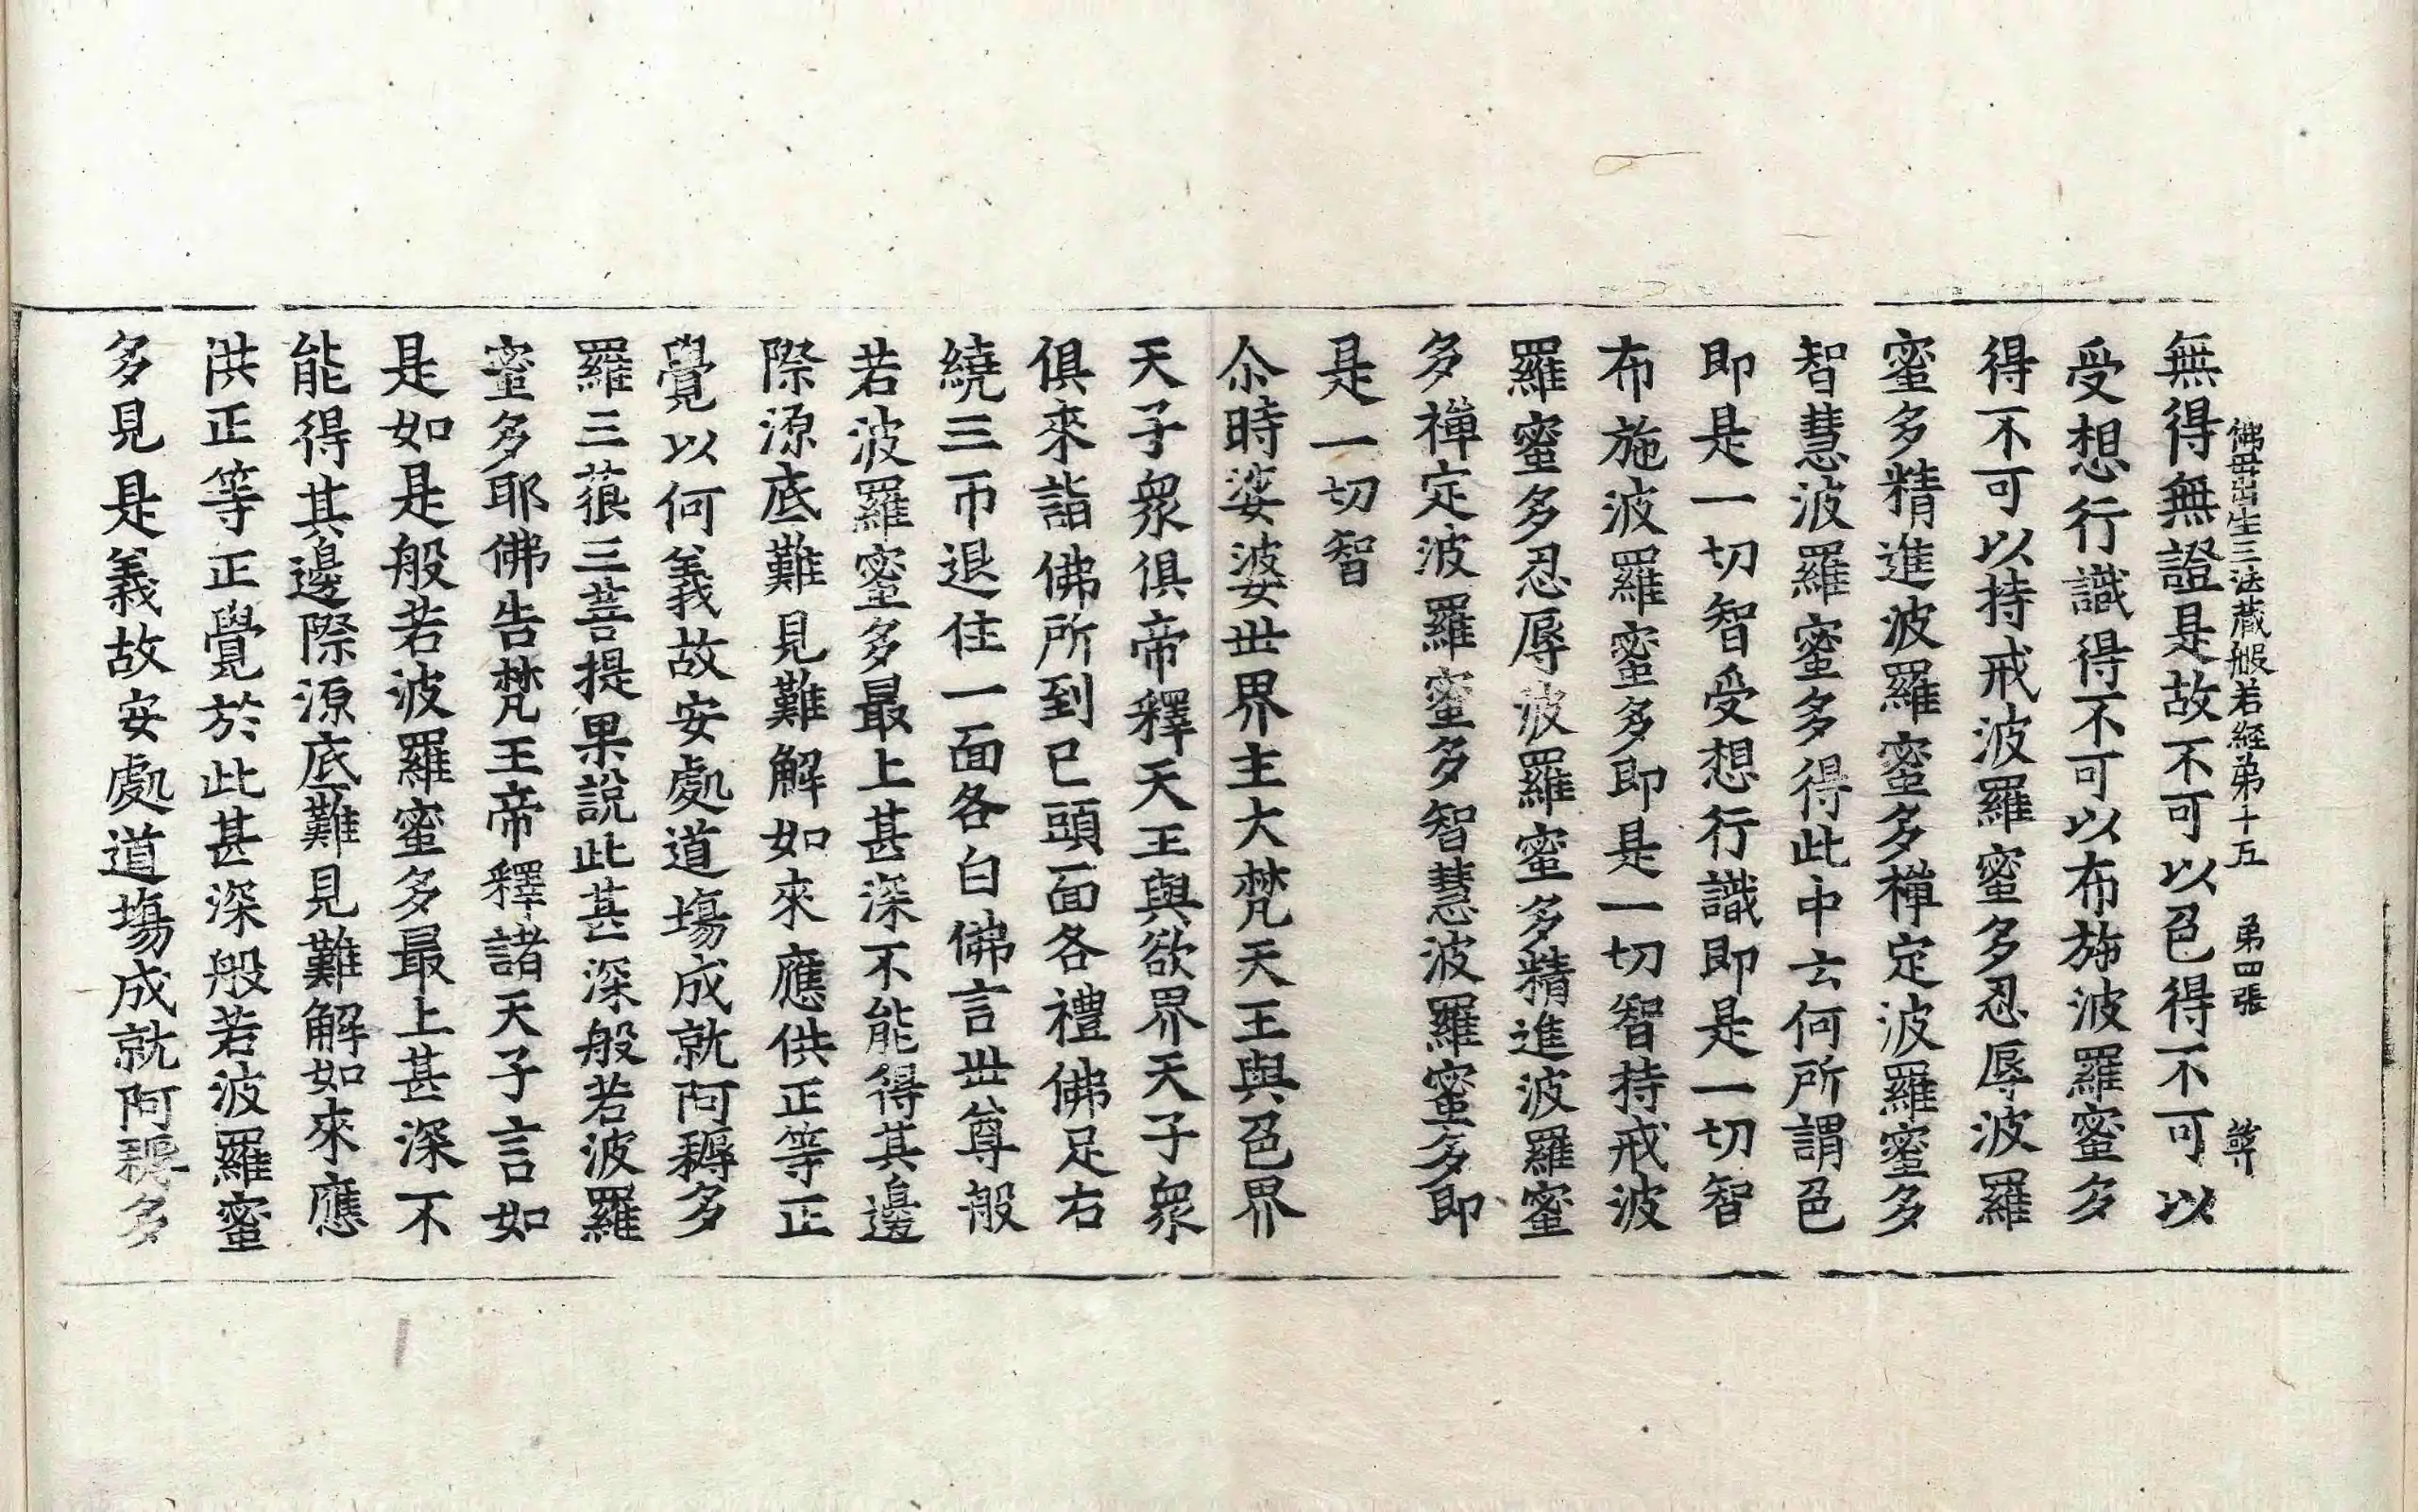 佛母出生三法藏般若經第十五 第四張
無得無證是故不可以色得不可以
受想行識得不可以布施波羅蜜多
得不可以持戒波羅蜜多忍辱波羅
蜜多精進波羅蜜多禪定波羅蜜多
智慧波羅蜜多得此中云何所謂色
即是一切智受想行識即是一切智
布施波羅蜜多即是一切智持戒波
羅蜜多忍辱波羅蜜多精進波羅蜜
多禪定波羅蜜多智慧波羅蜜多即
是一切智
尒時娑婆世界主大梵天王與色界
天子衆俱帝釋天王與欲界天子衆
俱來詣佛所到已頭面各禮佛足右
繞三帀退住一面各白佛言世尊般
若波羅蜜多最上甚深不能得其邊
際源底難見難解如來應供正等正
覺以何義故安處道場成就阿耨多
羅三藐三菩提果說此甚深般若波羅
蜜多耶佛告梵王帝釋諸天子言如
是如是般若波羅蜜多最上甚深不
能得其邊際源底難見難解如來應
洪正等正覺於此甚深般若波羅蜜
多見是義故安處道場成就阿耨多